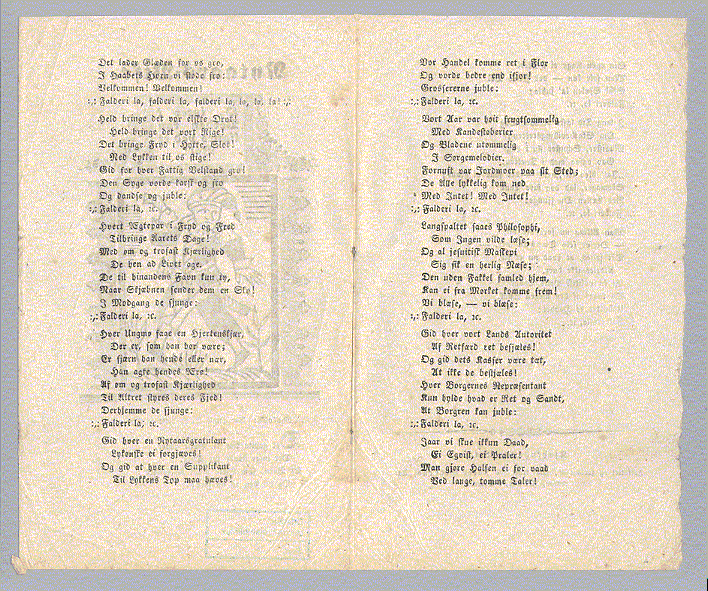 Det lader Glæden for os gro,
I Haabets Havn vi Rode fro:
Velkommen! Velkommen!
:,: Falderi la, falderi la, falderi la, la, la, la! :,:
Held bringe det vor elskte Drot!
Held bringe det vort Rige!
Det bringe Fryd i Hytte, Slot!
Med Lykken til os stige!
Gid for hver Fattig Velstand gro!
Den Syge vorde karsk og fro
Og dandse og juble:
:,: Falderi la, ɾc.
Hvert Ægtepar i Fryd og Fred
Tilbringe Aarets Dage!
Med øm og trofast Kjærlighed
De hen ad Livet age.
De til hinandens Favn kun ty,
Naar Skjæbnen sender dem en Sky!
I Modgang de sjunge:
:,: Falderi la, ɾc.
Hver Ungmø faae en Hjertenskjær,
Der er, som han bør være;
Er fjærn han hende eller nær,
Han agte hendes Ære!
Af øm og trofast Kjærlighed
Til Altret styres deres Fjed!
Derhjemme de sjunge:
:,: Falderi la, ɾc.
Gid hver en Nytaarsgratulant
Lykønske ei forgjæves!
Og gid at hver en Supplikant
Til Lykkens Top maa hæves!
Vor Handel komme ret i Flor
Og vorde bedre end ifjor!
Grossererne juble:
:,: Falderi la, ɾc.
Vort Aar var høit frugtsommelig
Med Kandestøberier
Og Bladene utømmelig
I Sørgemelodier.
Fornuft var Jordmoer paa sit Sted;
De Alle lykkelig kom ned
Med Intet! Med Intet!
:,: Falderi la, ɾc.
Langspaltet saaes Philosophi,
Som Ingen vilde læse;
Og al jesuitisk Maskepi
Sig fik en herlig Næse;
Den uden Fakkel famled hjem,
Kan ei fra Mørket komme frem!
Vi blæse, — vi blæse:
:,: Falderi la, ɾc.
Gid hver vort Lands Autoritet
Af Retfærd ret besjæles!
Og gid dets Kasser være tæt,
At ikke de bestjæles!
Hver Borgernes Repræsentant
Kun hylde hvad er Ret og Sandt,
At Borgren kan juble:
:,: Falderi la, ɾc.
Iaar vi skue ikkun Daad,
Ei Egoist, ei Praler!
Man gjøre Halsen ei for vaad
Ved lange, tomme Taler!